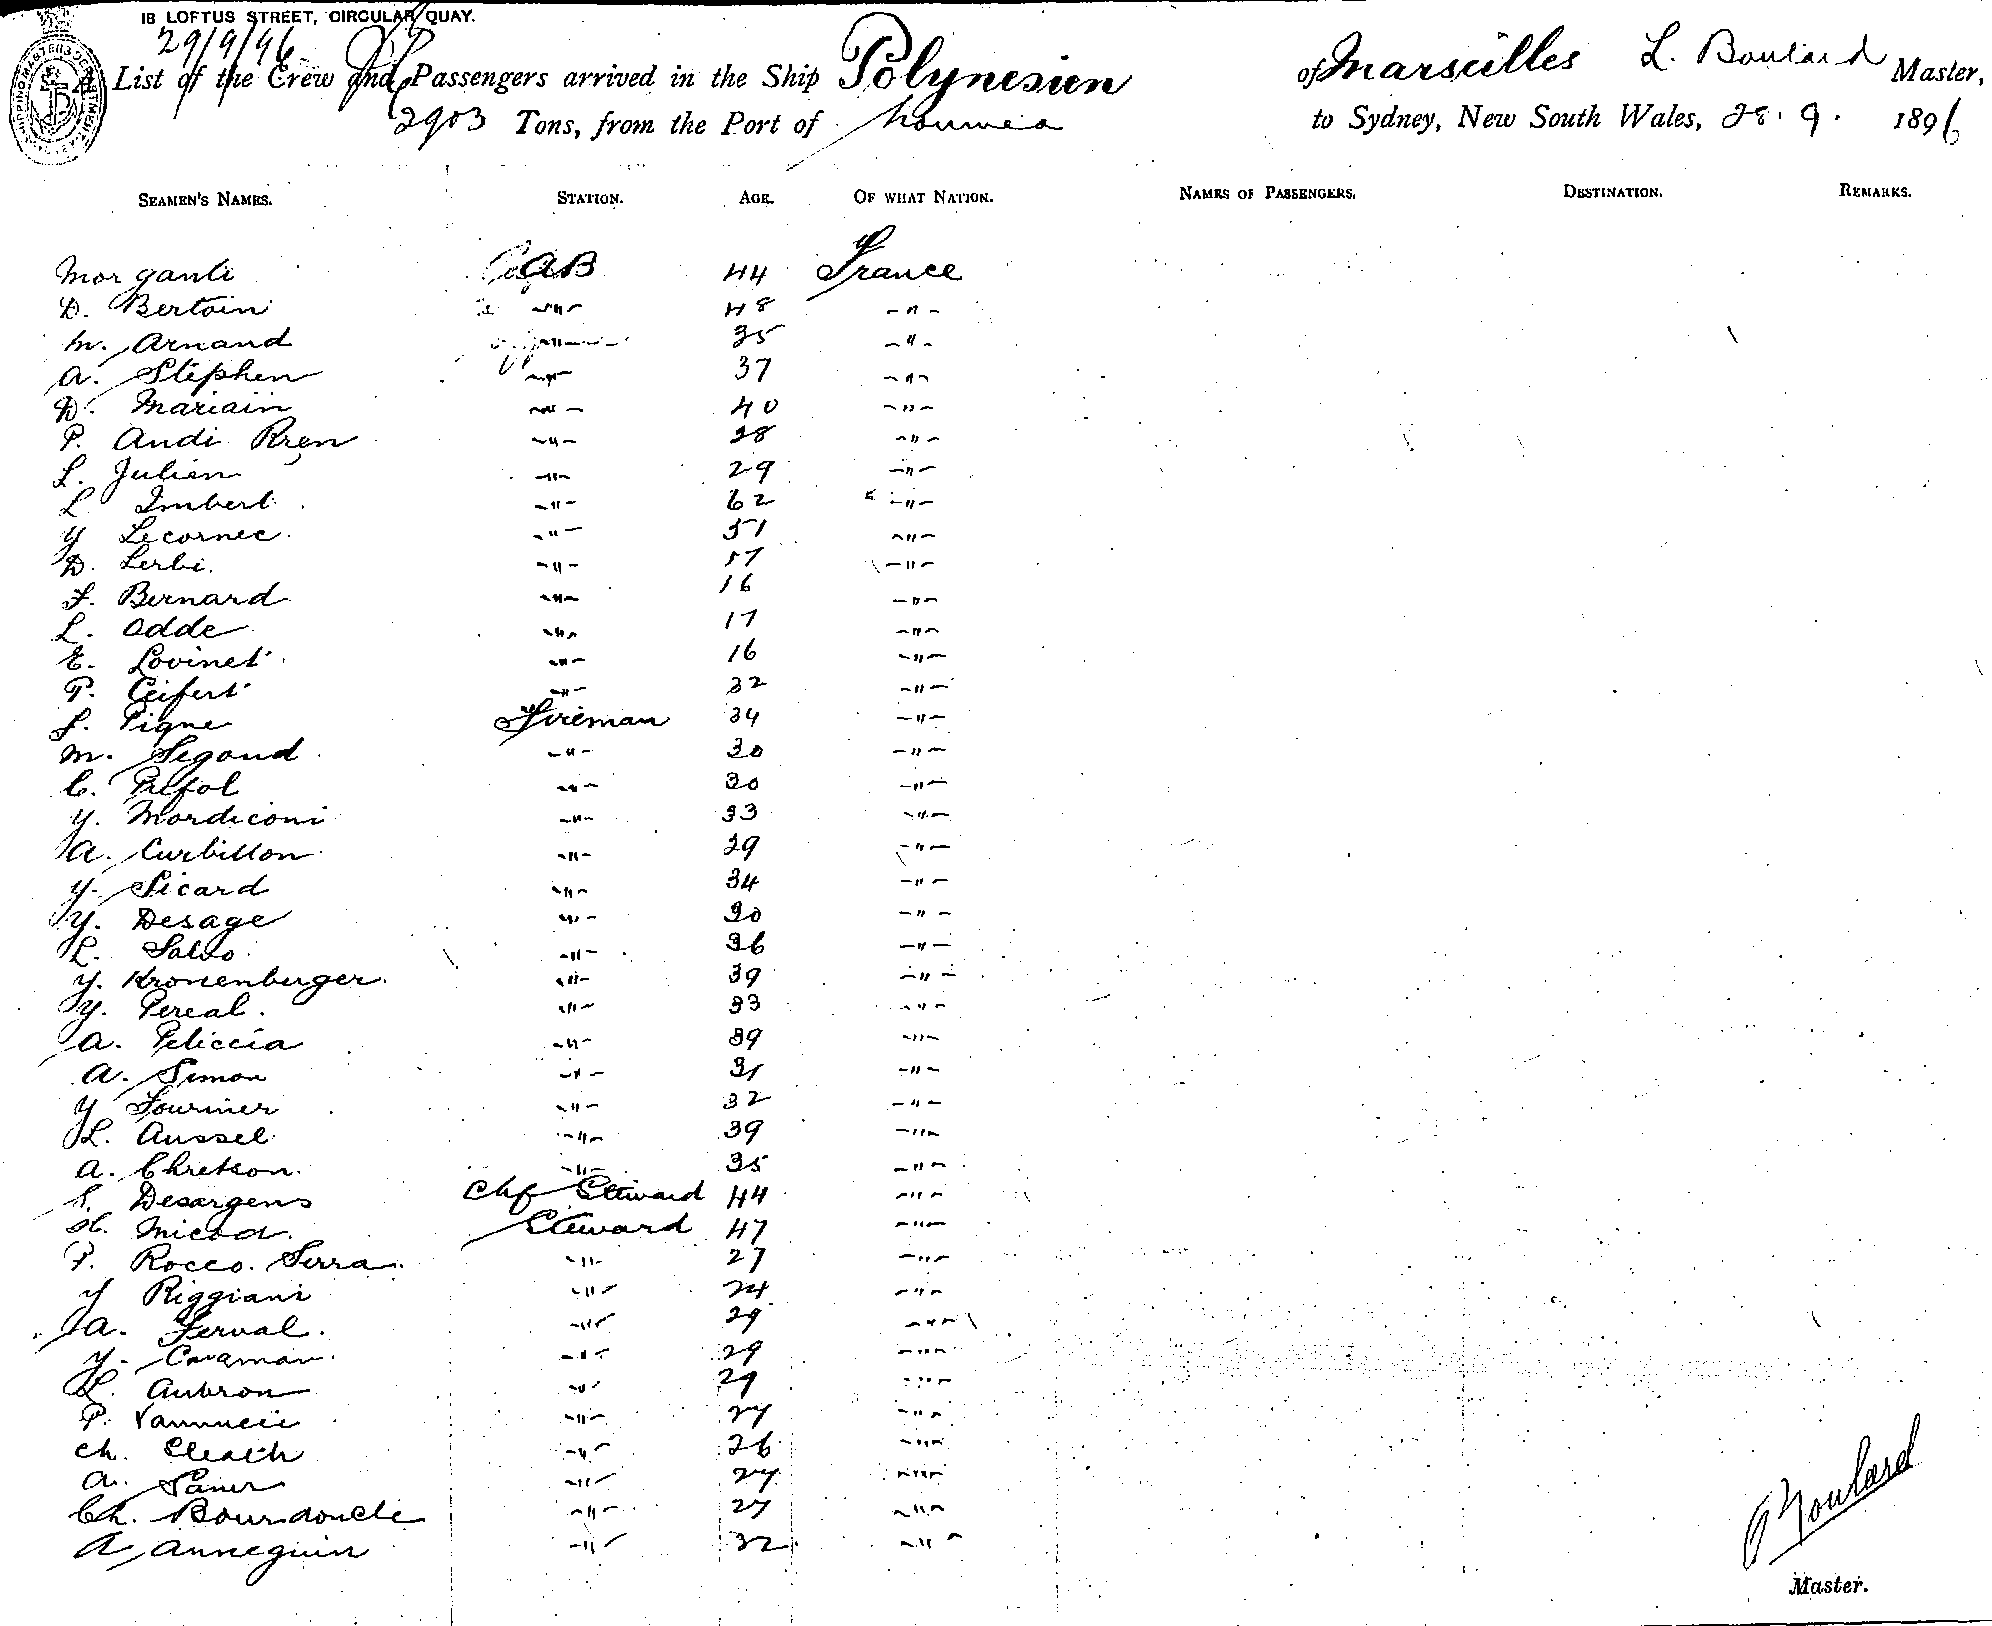 18 LOFTUS STREET, CIRCULAR QUAY.
29/9/96
A List of the Crew and Passengers arrived in the Ship Polynesien of Marseilles L. Boulard Master,
2903 Tons, from the Port of Noumea to Sydney, New South Wales, 28. 9. 1896
SEAMEN'S NAMES. STATION. AGE. OF WHAT NATION. NAMES OF PASSENGERS. DESTINATION. REMARKS.
Morganti AB 44 France
D. Bertoin -"- 48 -"-
M. Arnaud -"- 35 -"-
A. Stephen -"- 37 -"-
D. Mariain -"- 40 -"-
P. Andi Rren -"- 28 -"-
L. Julien -"- 29 -"-
L Imbert -"- 62 -"-
Y Lecornec. -"- 51 -"-
D. Lerbi. -"- 17 -"-
F. Bernard -"- 16 -"-
L. Odde -"- 17 -"-
E. Lovinet -"- 16 -"-
P. Ceifert -"- 32 -"-
L. Pigne Fireman 34 -"-
M. Segond -"- 30 -"-
C. Prefol -"- 30 -"-
Y. Mordiconi -"- 33 -"-
A. Curbillon -"- 29 -"-
Y. Sicard -"- 34 -"-
Y. Desage -"- 30 -"-
L. Salvo -"- 36 -"-
Y. Kronenburger. -"- 39 -"-
Y. Pereal. -"- 33 -"-
A. Peliccia -"- 39 -"-
A. Simon -"- 31 -"-
Y Fournier -"- 32 -"-
L. Aussel -"- 39 -"-
A. Chretson. -"- 35 -"-
S. Desargens Chf Steward 44 -"-
H. Micod. Steward 47 -"-
P. Rocco. Serra. -"- 27 -"-
Y Riggiani -"- 24 -"-
A. Ferval. -"- 29 -"-
Y. Caraman. -"- 29 -"-
L. Aubron -"- 29 -"-
P. Vannucii -"- 27 -"-
Ch. -"- 26 -"-
A. -"- 27 -"-
Ch. Bourdoncle -"- 27 -"-
A Anneguin -"- 32 -"-
Boulard
Master.